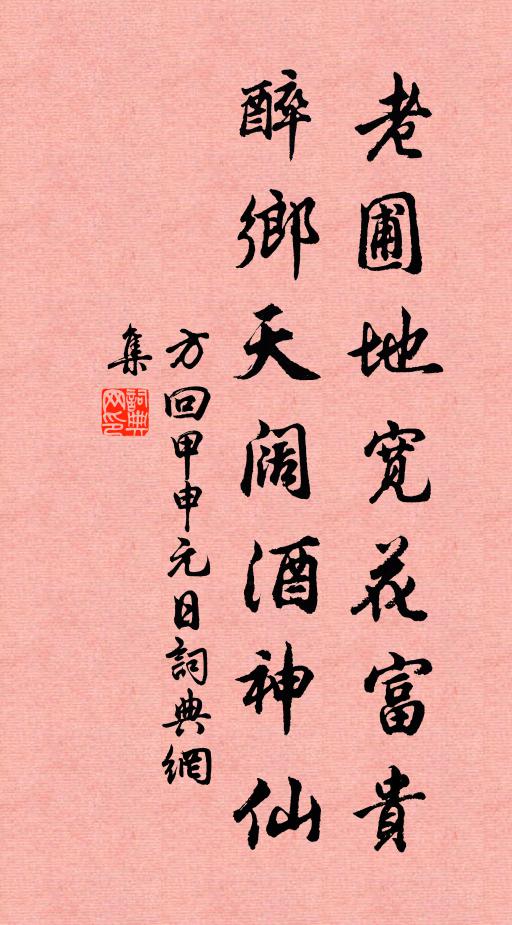 老圃地寛花富貴
醉鄉天阔酒神仙
方回甲申元日詞典網
集
詞典网印